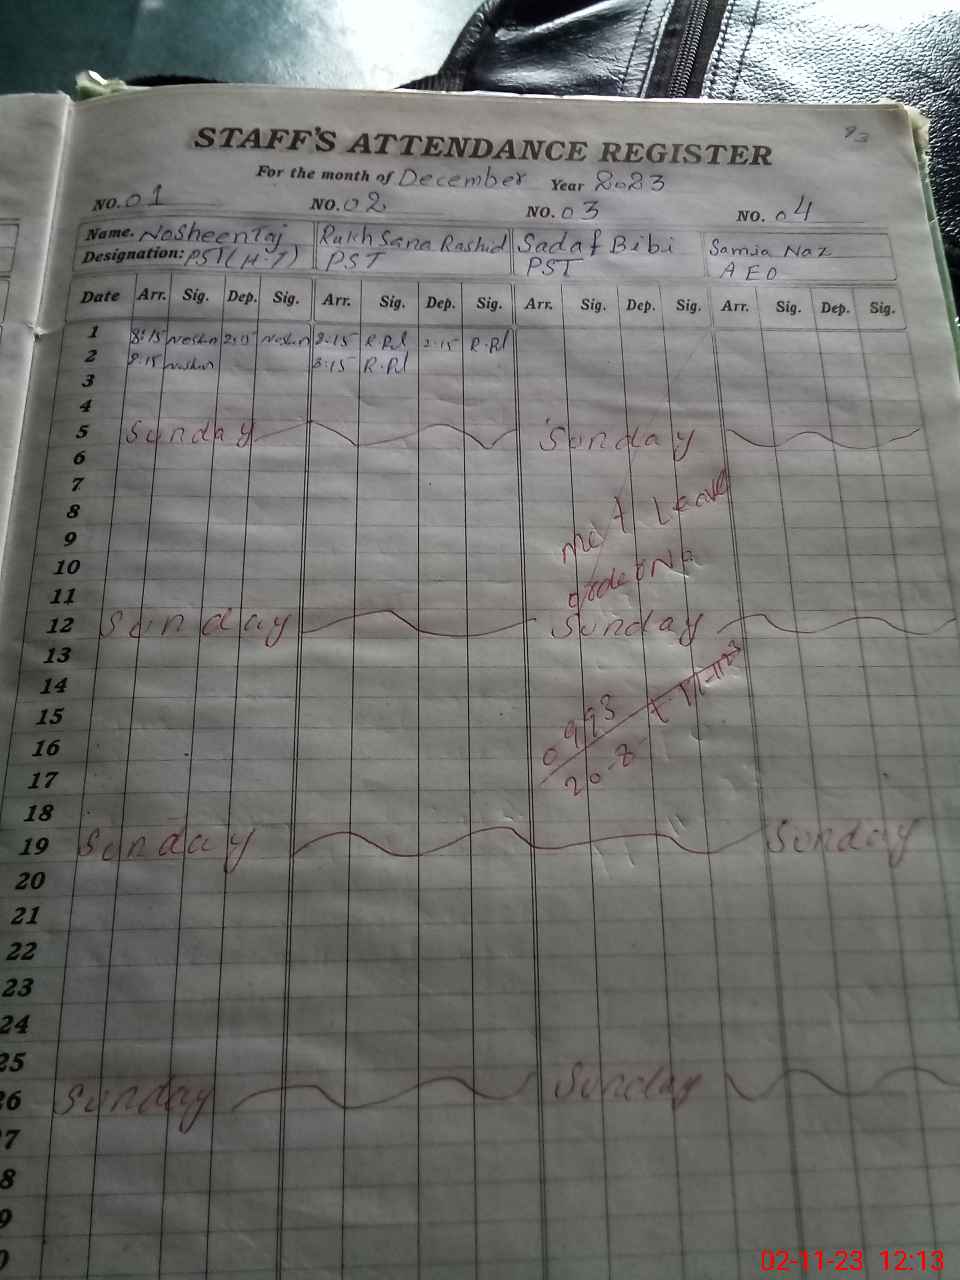 93
STAFF'S ATTENDANCE REGISTER
For the month of December Year 2023
NO. 01 NO. 02 NO. 03 NO. 04
Name. Nosheen Taj Rukhsana Rashid Sadaf Bibi Samia Naz
Designation: PST(H-T) PST PST AEO
Date Arr. Sig. Dep. Sig. Arr. Sig. Dep. Sig. Arr. Sig. Dep. Sig. Arr. Sig. Dep. Sig.
1 8:15 Noshn Noshn 8:15 R.Rd 2:15 R.Rd
2 8:15 Noshn 8:15 R.Rd
3
4
5 Sunday Sunday
6
7
8 Leave
9
10 order No
11
12 Sunday Sunday
13
14
15 0993
16 20-8-
17
18
19 Sunday Sunday
20
21
22
23
24
25
26 Sunday Sunday
7
8
9
0
02-11-23 12:13